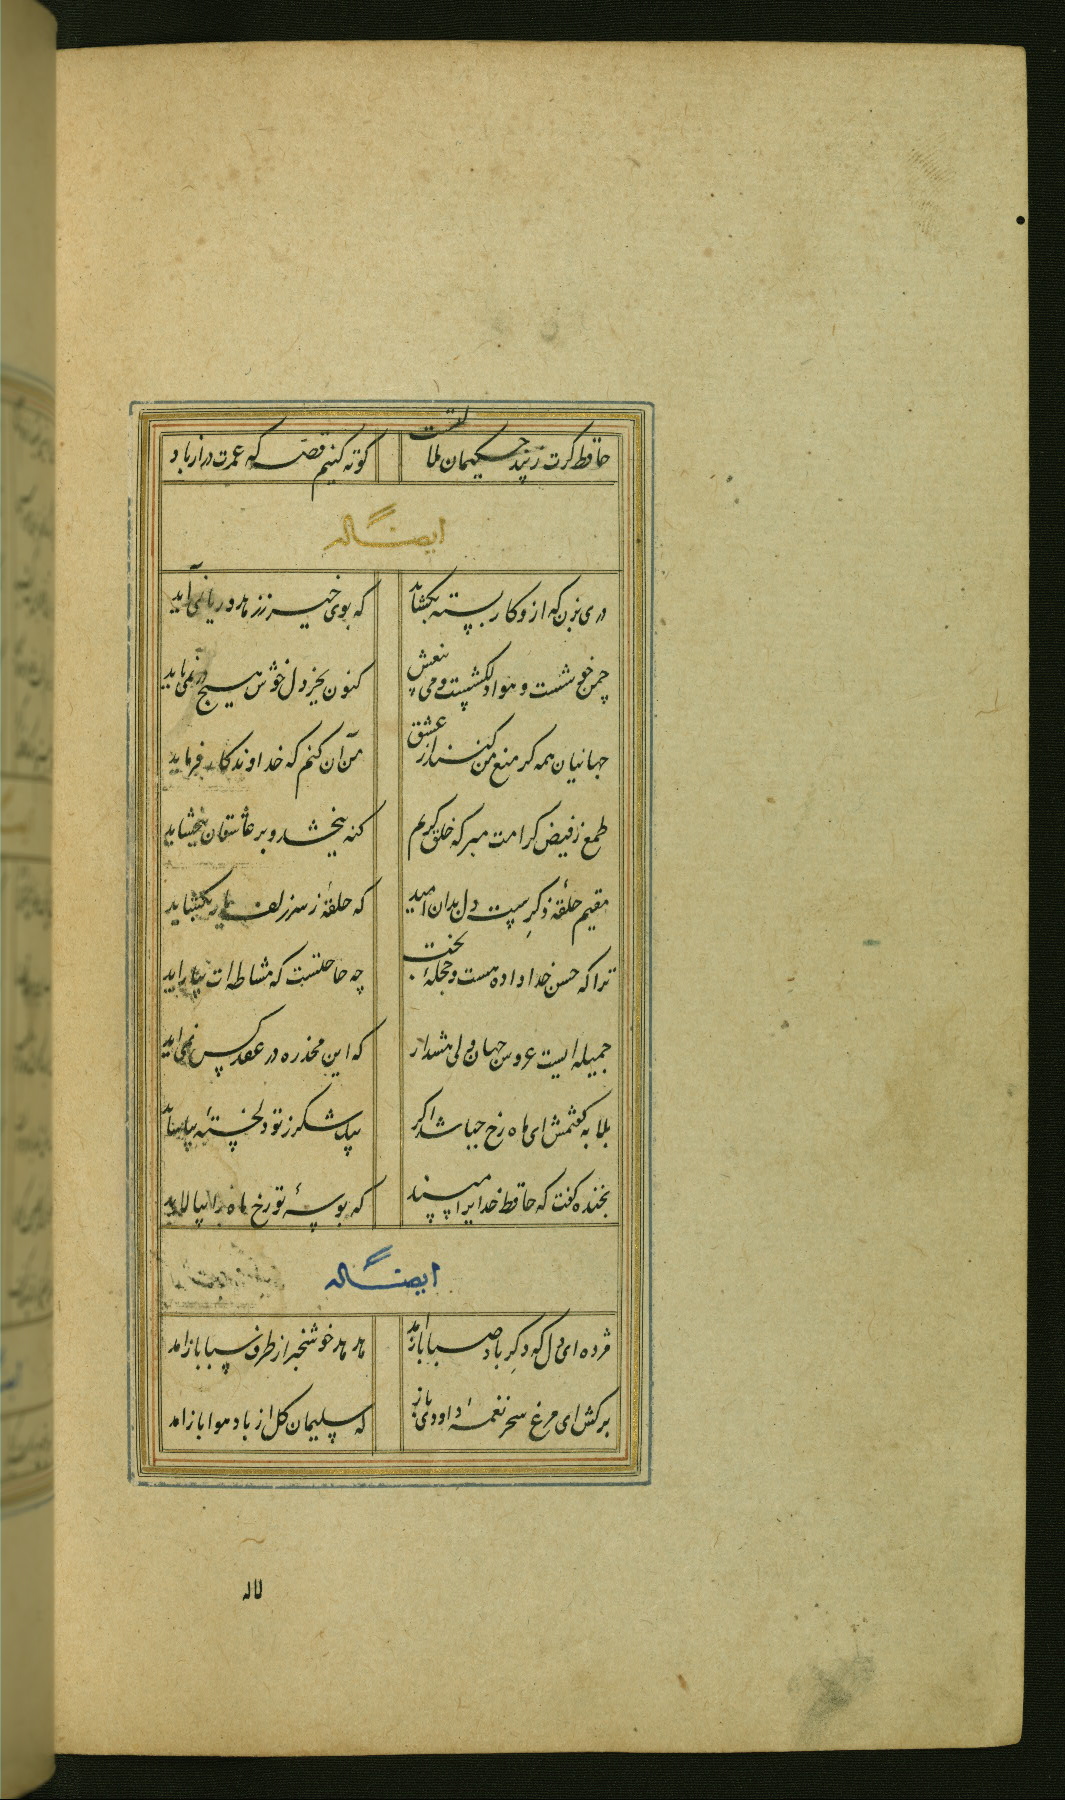 حافظ گرت ز پند حکیمان ملالتست کوته کنیم قصه که عمرت دراز باد
ایضاً له
که بوی خیر ززهد و ریا نمی‌آید
چمن خوشست و هوا دلکشست و می بیغش کنون بجز دل خوش هیچ در نمی‌باید
جهانیان همه گر منع من کنند از عشق من آن کنم که خداوندگار فرماید
طمع ز فیض کرامت مبر که خلق کریم گنه ببخشد و بر عاشقان ببخشاید
مقیم حلقهٔ ذکرست دل بدان امید که حلقهٔ ز سر زلف یار بگشاید
ترا که حسن خداداده هست و حجلهٔ بخت چه حاجتست که مشاطه‌ات بیاراید
جمیله‌ایست عروس جهان ولی هشدار که این مخدره در عقد کس نمی‌آید
بلابه گفتمش ای ماه رخ چه باشد اگر بیک شکر ز تو دلخستهٔ بیاساید
بخنده گفت که حافظ خدایرا مپسند که بوسهٔ تو رخ ماه را بیالاید
ایضاً له
مژده ای دل که دگر باد صبا باز آمد هدهد خوشخبر از طرف سبا باز آمد
برکش ای مرغ سحر نغمهٔ داودی باز که سلیمان گل از باد هوا باز آمد